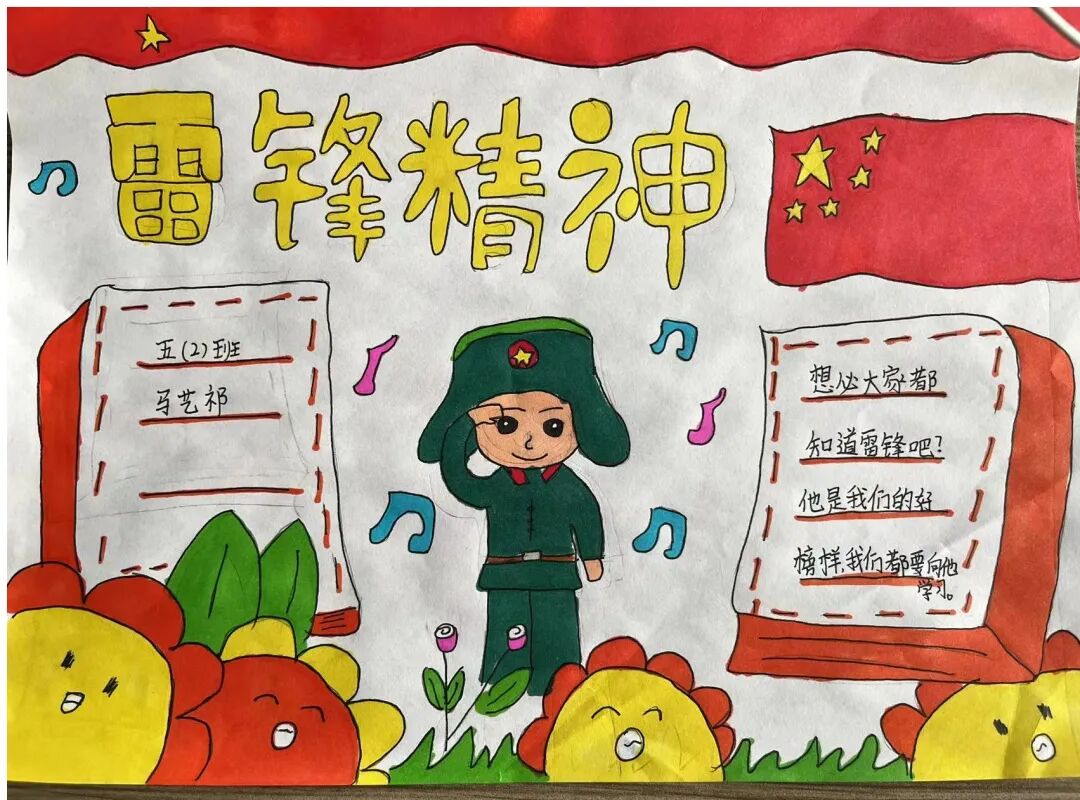 雷锋精神
五(2)班
马艺祁
想必大家都
知道雷锋吧?
他是我们的好
榜样,我们都要向他
学习。